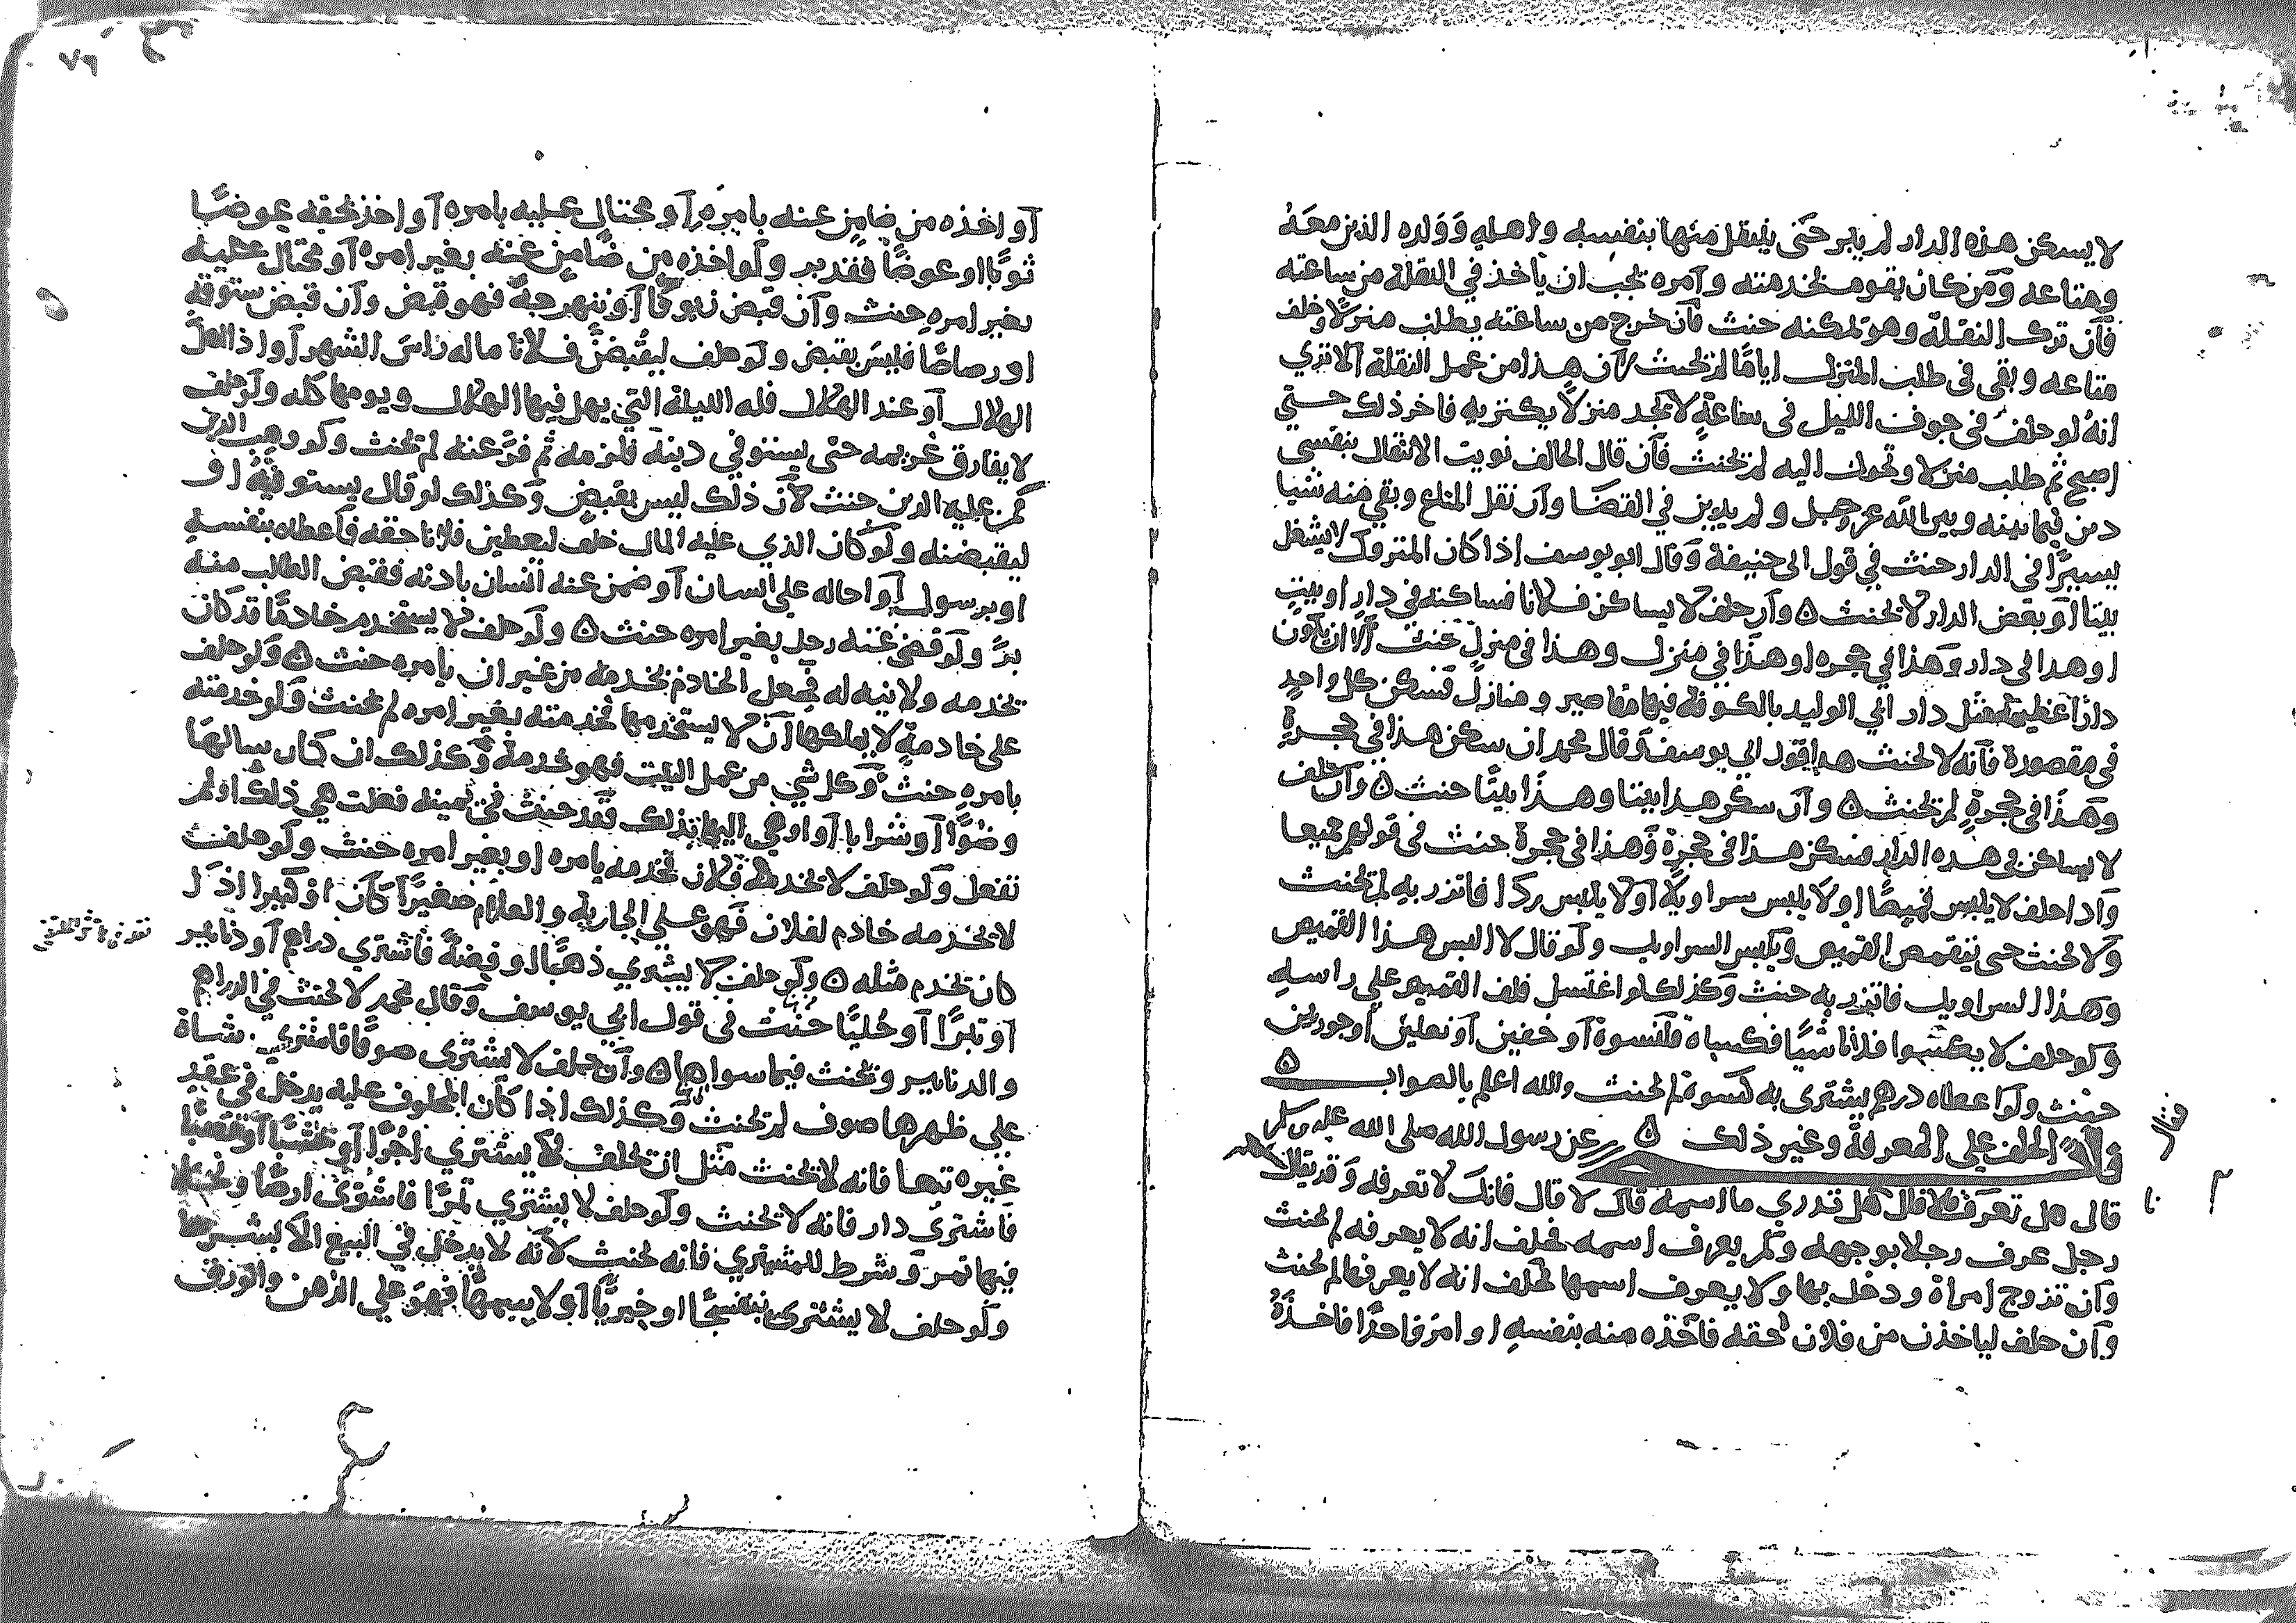 لا يسكن هذه الدار لم يبر حتى ينتقل منها بنفسه واهله وولده الذين معه
ومتاعه ومن كان يقوم بخدمته وامره يجب ان ياخذ في النقلة من ساعته
فان ترك النقلة وهو تمكنه حنث فان خرج من ساعته يطلب منزلا وخلف
متاعه وبقى فى طلب المنزل اياما لم يحنث لان هذا من عمل النقلة الا تري
انه لو حلف فى جوف الليل فى ساعة لا يجد منزلا يكتريه فاخر ذلك حتي
اصبح ثم طلب منزلا وتحول اليه لم يحنث فان قال الحالف نويت الانتقال بنفسى
دين فيما بينه وبين الله عز وجل ولم يدين في القضا وان نقل المتاع وبقى منه شيا
يسيرا فى الدار حنث في قول ابى حنيفة وقال ابو يوسف اذا كان المتروك لا يشغل
بيتا او بعض الدار لا يحنث ٥ وان حلف لا يساكن فلانا فساكنه فى دار او بيت
او هذا في دار وهذا في حجره او هذا في منزل وهذا فى منزل حنث الا ان يكون
دارا عظيمة مثل دار ابي الوليد بالكوفة فيها مقاصير ومنازل فسكن كل واحد
فى مقصورة فانه لا يحنث هذا قول ابي يوسف وقال محمد ان سكن هذا في حجرة
وهذا فى حجرة لم يحنث ٥ وان سكن هذا بيتا وهذا بيتا حنث ٥ وان حلف
لا يساكن في هذه الدار فسكن هذا فى حجرة وهذا فى حجرة حنث فى قولهم جميعا
واذا حلف لا يلبس قميصا او لا يلبس سراويلا او لا يلبس ردا فاتزر به لم يحنث
ولا يحنث حتى يتقمص القميص ويلبس السراويل ولو قال لا البس هذا القميص
وهذا السراويل فاتزر به حنث وكذلك لو اغتسل فلف القميص علي راسه
ولو حلف لا يكسوا فلانا شيا فكساه قلنسوة او خفين او نعلين او جوربين
حنث ولو اعطاه درهم يشترى به كسوة لم يحنث والله اعلم بالصواب ٥
الحلف علي المعرفة وغير ذلك ٥ عن رسول الله صلى الله عليه وسلم
قال هل تعرف فلانا قال هل تدري ما اسمه قال لا قال فانك لا تعرفه وقد يقال
رجل عرف رجلا بوجهه ولم يعرف اسمه فحلف انه لا يعرفه لم يحنث
وان تزوج امراة ودخل بها ولا يعرف اسمها فحلف انه لا يعرفها لم يحنث
وان حلف لياخذن من فلان حقه فاخذه منه بنفسه او امر واحدا فاخذه
او اخذه من ضامن عنه بامره او محتال عليه بامره او اخذ بحقه عوضا
ثوبا او عوضا فقد بر ولو اخذه من ضامن عنه بغير امره او محتال عليه
بغير امره حنث وان قبض زيوفا او نبهرجة فهو قبض وان قبض ستوقة
او رصاصا فليس بقبض ولو حلف ليقبضن فلانا ماله راس الشهر او اذا اهل
الهلال او عند الهلال فله الليلة التي يهل فيها الهلال ويومها كله ولو حلف
لا يفارق غريمه حتى يستوفي دينه فلزمه ثم فر عنه لم يحنث ولو وهب الدين
لمن عليه الدين حنث لان ذلك ليس بقبض وكذلك لو قال يستوفيه او
ليقبضنه ولو كان الذي عليه المال حلف ليعطين فلانا حقه فاعطاه بنفسه
او برسول او احاله علي انسان او ضمن عنه انسان باذنه فقبض الطالب منه
بر ولو قضى عنه رجل بغير امره حنث ٥ ولو حلف لا يستخدم خادما قد كان
تخدمه ولا نيه له فجعل الخادم يخدمه من غير ان يامره حنث ٥ ولو حلف
على خادمة لا يملكها ان لا يستخدمها فخدمته بغير امره لم يحنث ولو خدمته
بامره حنث وكل شي من عمل البيت فهو خدمة وكذلك ان كان سالها
وضوا او شرابا او اومى اليها بذلك فقد حنث في يمينه فعلت هي ذلك او لم
تفعل ولو حلف لا يخدمه فلان فخدمه بامره او بغير امره حنث ولو حلف
لا يخدمه خادم لفلان فهو على الجارية والغلام صغيرا كان او كبيرا اذا
كان يخدم مثله ٥ ولو حلف لا يشتري ذهبا او فضة فاشترى دراهم او دنانير
او تبرا او حليا حنث فى قول ابي يوسف وقال محمد لا يحنث في الدراهم
والدنانير ويحنث فيما سواها ٥ وان حلف لا يشترى صوفا فاشترى شاة
على ظهرها صوف لم يحنث وكذلك اذا كان المحلوف عليه يدخل في عقد
غيره تبعا فانه لا يحنث مثل ان يحلف لا يشتري اجرا او خشبا او قصبا
فاشترى دار فانه لا يحنث ولو حلف لا يشتري تمرا فاشترى ارضا ونخلا
فيها تمر وشرط للمشتري فانه يحنث لانه لا يدخل في البيع الا بشرط
ولو حلف لا يشترى بنفسجا او خيريا او لا يسمها فهو علي الدهن والورق